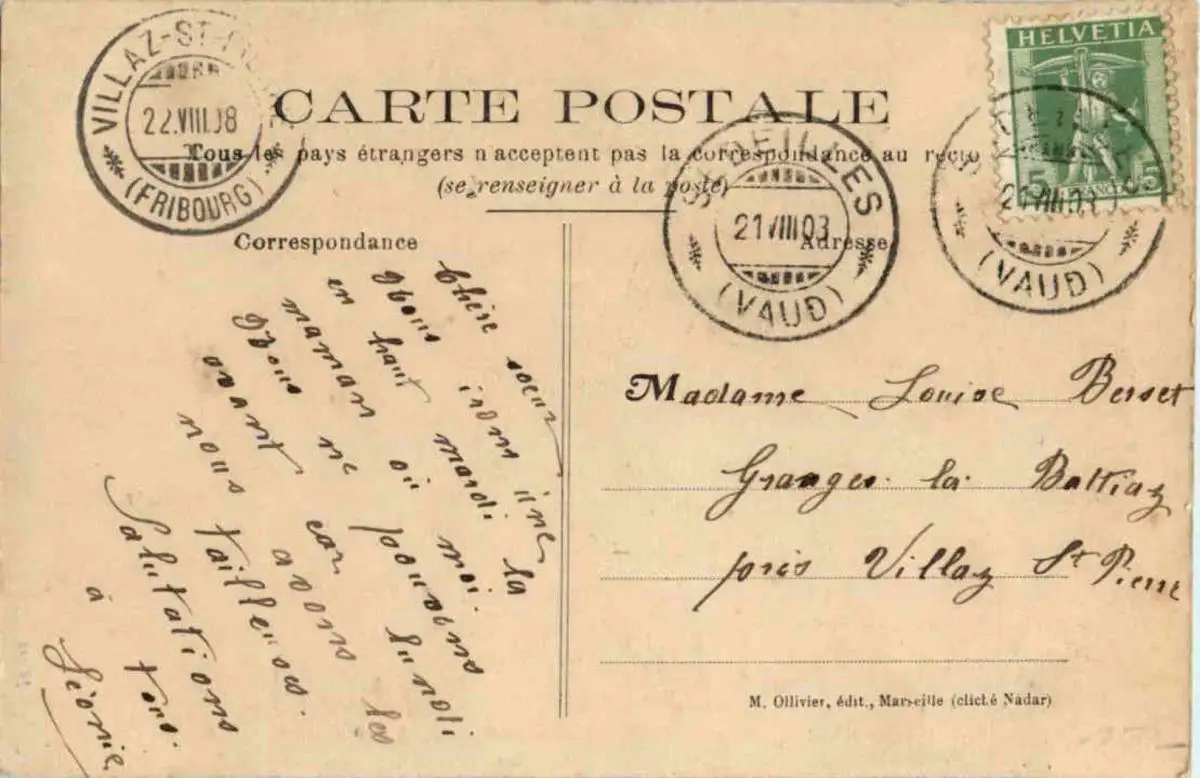 VILLAZ-ST-PIERRE
22.VIII.08
(FRIBOURG)
HELVETIA
5 FRANCO 5
CARTE POSTALE
Tous les pays étrangers n'acceptent pas la correspondance au recto
(se renseigner à la poste)
21 VIII 08
(VAUD)
21 VIII 08
(VAUD)
Correspondance
Adresse
Chère soeur
Nous irons une
en haut mardi la
maman où moi.
Nous ne pouvons
avant car lundi
nous avons les
tailleuses.
Salutations
à tous.
Léonie
Madame Louise Berset
Granges la Battiaz
près Villaz St Pierre
M. Ollivier, édit., Marseille (cliché Nadar)